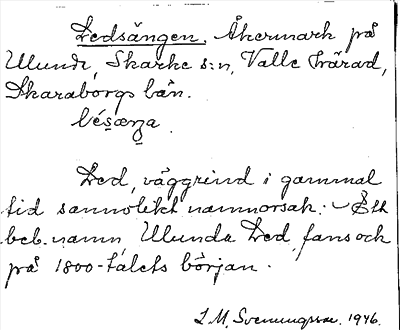 Ledsängen. Åkermark på
Ulunda, Skarke s:n, Valle härad,
Skaraborgs län.
Led, väggrind i gammal
tid sannolikt namnorsak. Ett
beb. namn, Ulunda Led, fans ock
på 1800-talets början.
L.M. Svenungsson. 1946.